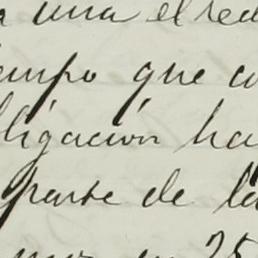 una el red
empo que co
ligación ha
parte de la
25